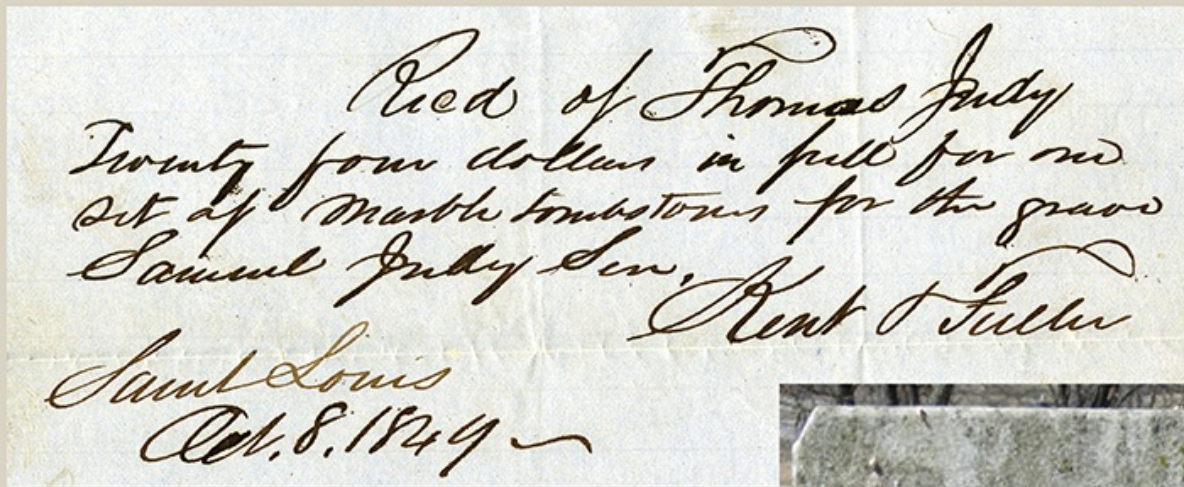 Recd of Thomas Judy
Twenty four dollars in full for one
set of Marble tombstones for the grave
Samuel Judy Sen.
Kent & Fuller
Saint Louis
Oct. 8. 1849